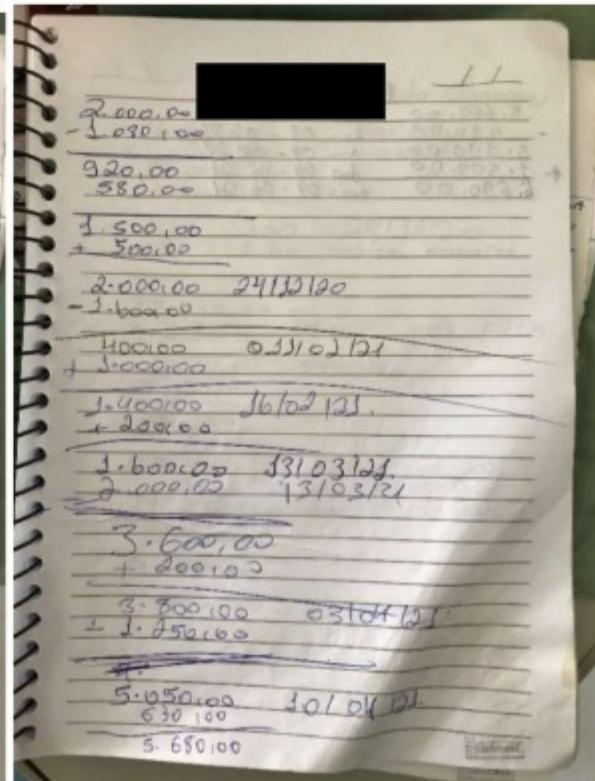 / /
2.000,00
- 1.080,00
920,00
580,00
1.500,00
+ 500,00
2.000,00 24/12/20
- 1.600,00
400,00 011/02/21
+ 1.000,00
1.400,00 16/02/21.
+ 200,00
1.600,00 13/03/21.
2.000,00 13/03/21
3.600,00
+ 200,00
3.800,00 03/04/21.
+ 1.250,00
5.050,00 10/04/21.
630,00
5.680,00